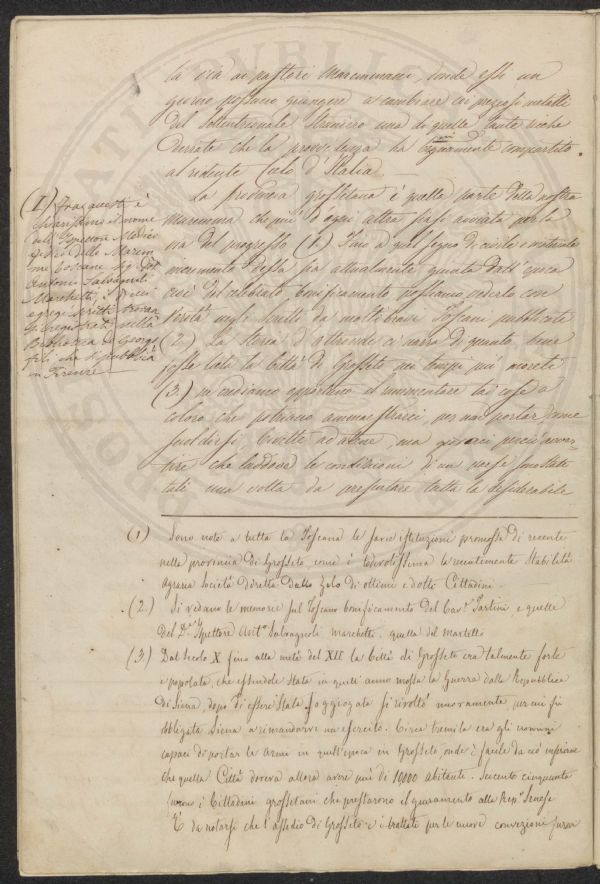 la ora ai pastori Maremmani, onde essi un
giorno possano giungere a cambiare coi preziosi metalli
del Settentrionale straniero una di quelle tante ricche
derrate che la provvidenza ha compartito
al ridente Cielo d'Italia
La Provincia grossetana è quella parte della nostra
Maremma che più d'ogni altra siasi avviata per la
via del progresso (1.) Fino a qual segno di civile e materiale
incremento dessa sia attualmente giunta dall'epoca
del celebrato bonificamento possiamo vederlo con
negli scritti da molti bravi Toscani pubblicati
(2.) La storia d'altronde ci narra di quanto bene
fosse lieta la Città di Grosseto nei tempi più
(3.) crediamo opportuno il rammentare tai cose a
coloro che potriano ammaestrarci, per non portar come
suol dirsi Civette ad atene, ma giovaci perciò avver-
tire che laddove le condizioni di un paese
tali una volta da presentare tutta la desiderabile
(I) fra questi è
il nome
dell'Ispettore Medico
delle Marem
me toscane Sig. Dot
Antonio Salvagnoli
Marchetti, i di cui
egregi scritti trovan
si nella
Biblioteca dei Georgo
fili che si pubblica
in Firenze
(1) Sono note a tutta la Toscana le savie istituzioni promosse di recente
nella provincia di Grosseto, come è lodevolissima la recentemente stabilita
Agraria Società diretta dallo zelo di ottimi e dotti Cittadini.
(2.) Si vedano le memorie sul Toscano bonificamento del Cav.e Tartini, e quelle
del D.r Ispettore Ant.o Salvagnoli Marchetti, quella del martello
(3.) Dal secolo X fino alla metà del XII la Città di Grosseto era talmente forte
e popolata, che essendole stata in quell'anno mossa la Guerra dalla Repubblica
di Siena, dopo d'essere stata soggiogata si rivoltò nuovamente, per cui fu
obbligata Siena a rimandarvi un esercito. Circa tremila eran gli uomini
capaci di portar le armi in quell'epoca in Grosseto, onde è facile da ciò inferirne
che quella Città doveva allora avere più di 10000 abitanti. Seicento cinquanta
furono i Cittadini grossetani che prestarono il giuramento alla Rep.a Senese
E' da notarsi che l'assedio di Grosseto e i trattati per le nuove convenzioni